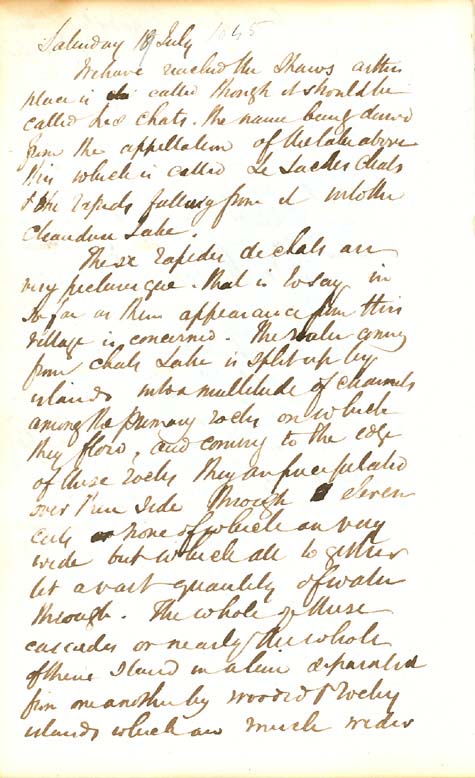 Saturday 19 July 1845
We have reached the Shaws as this
place is called though it should be
called Les Chats. the name being derived
from the appellation of the lake above
this which is called Le Lac des Chats
& the rapids falling from it into the
Chaudiere Lake.
These Rapides des chats are
very picturesque. that is to say in
so far as their appearance from this
village is concerned. The water coming
from Chats Lake is split up by
islands into a multitude of channels
among the primary rocks on which
they flow, and coming to the edge
of these rocks they are precipitated
over their side through eleven
cuts none of which are very
wide but which all together
let a vast quantity of water
through. The whole of these
cascades or nearly the whole
of them stand in a line separated
from one another by wooded & rocky
islands which are much wider